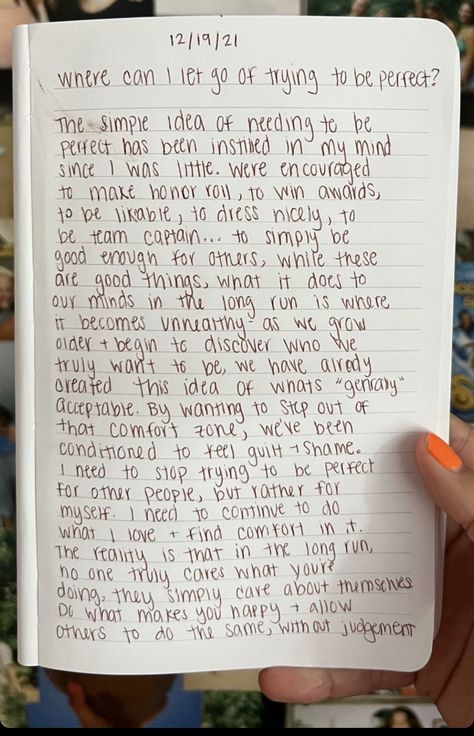 12/19/21
where can I let go of trying to be perfect?
The simple idea of needing to be
perfect has been instilled in my mind
since I was little. We're encouraged
to make honor roll, to win awards,
to be likable, to dress nicely, to
be team captain... to simply be
good enough for others, while these
are good things, what it does to
our minds in the long run is where
it becomes unhealthy- as we grow
older + begin to discover who we
truly want to be, we have alredy
created this idea of whats "genrally"
acceptable. By wanting to step out of
that comfort zone, we've been
conditioned to feel guilt + shame.
I need to stop trying to be perfect
for other people, but rather for
myself. I need to continue to do
what I love + find comfort in it.
The reality is that in the long run,
no one truly cares what you're
doing, they simply care about themselves
Do what makes you happy + allow
others to do the same, without judgement